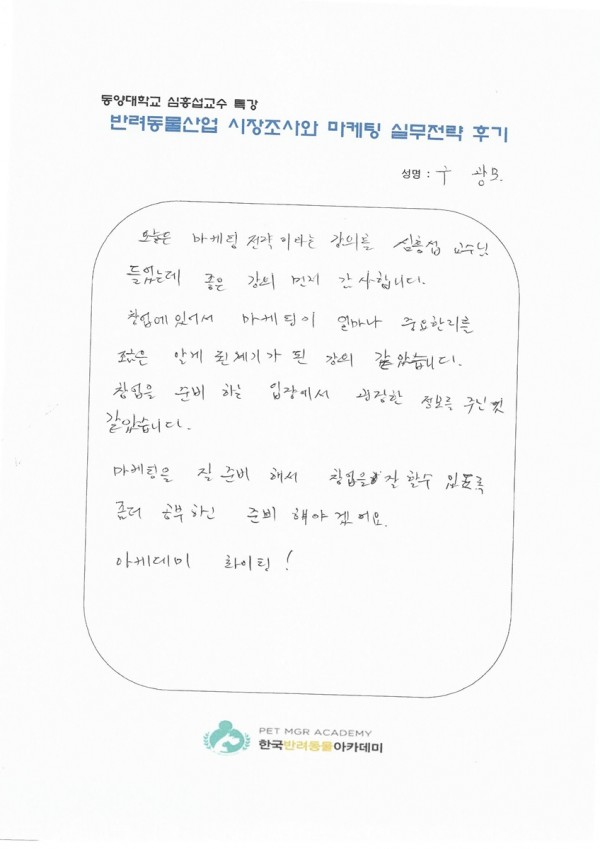 동양대학교 심홍섭교수 특강
반려동물산업 시장조사와 마케팅 실무전략 후기
성명 : 구 광모.
오늘은 마케팅 전략 이라는 강의를 심홍섭 교수님
들었는데 좋은 강의 먼저 감사합니다.
창업에있어서 마케팅이 얼마나 중요한리를
알게 된 강의 같았습니다.
창업을 준비 하는 입장에서 굉장한 정보를 주신것
같았습니다.
마케팅을 잘 준비 해서 창업을 잘 할수 있도록
좀더 공부하신 준비 해야 겠어요.
아케데미 화이팅!
PET MGR ACADEMY
한국반려동물아카데미